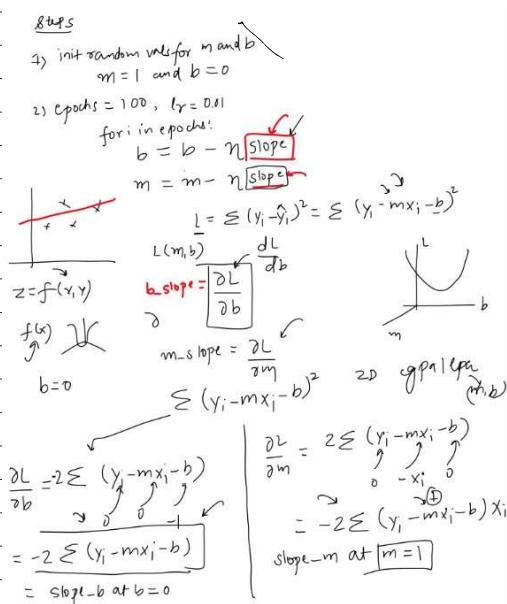 Steps
1) init random vals for m and b
m = 1 and b = 0
2) epochs = 100, lr = 0.01
for i in epochs:
b = b - η slope
m = m - η slope
L = Σ (yi - ŷi)² = Σ (yi - mxi - b)²
L(m,b)
dL/db
L
b
m
z = f(x,y)
b_slope = ∂L/∂b
∂
f(x)
m_slope = ∂L/∂m
b = 0
2D cgpa | lpa
(m,b)
Σ (yi - mxi - b)²
∂L/∂b = -2Σ (yi - mxi - b)
0 0 -1
= -2 Σ (yi - mxi - b)
= slope_b at b = 0
∂L/∂m = 2Σ (yi - mxi - b)
0 -xi 0
+
= -2Σ (yi - mxi - b) xi
slope_m at m = 1